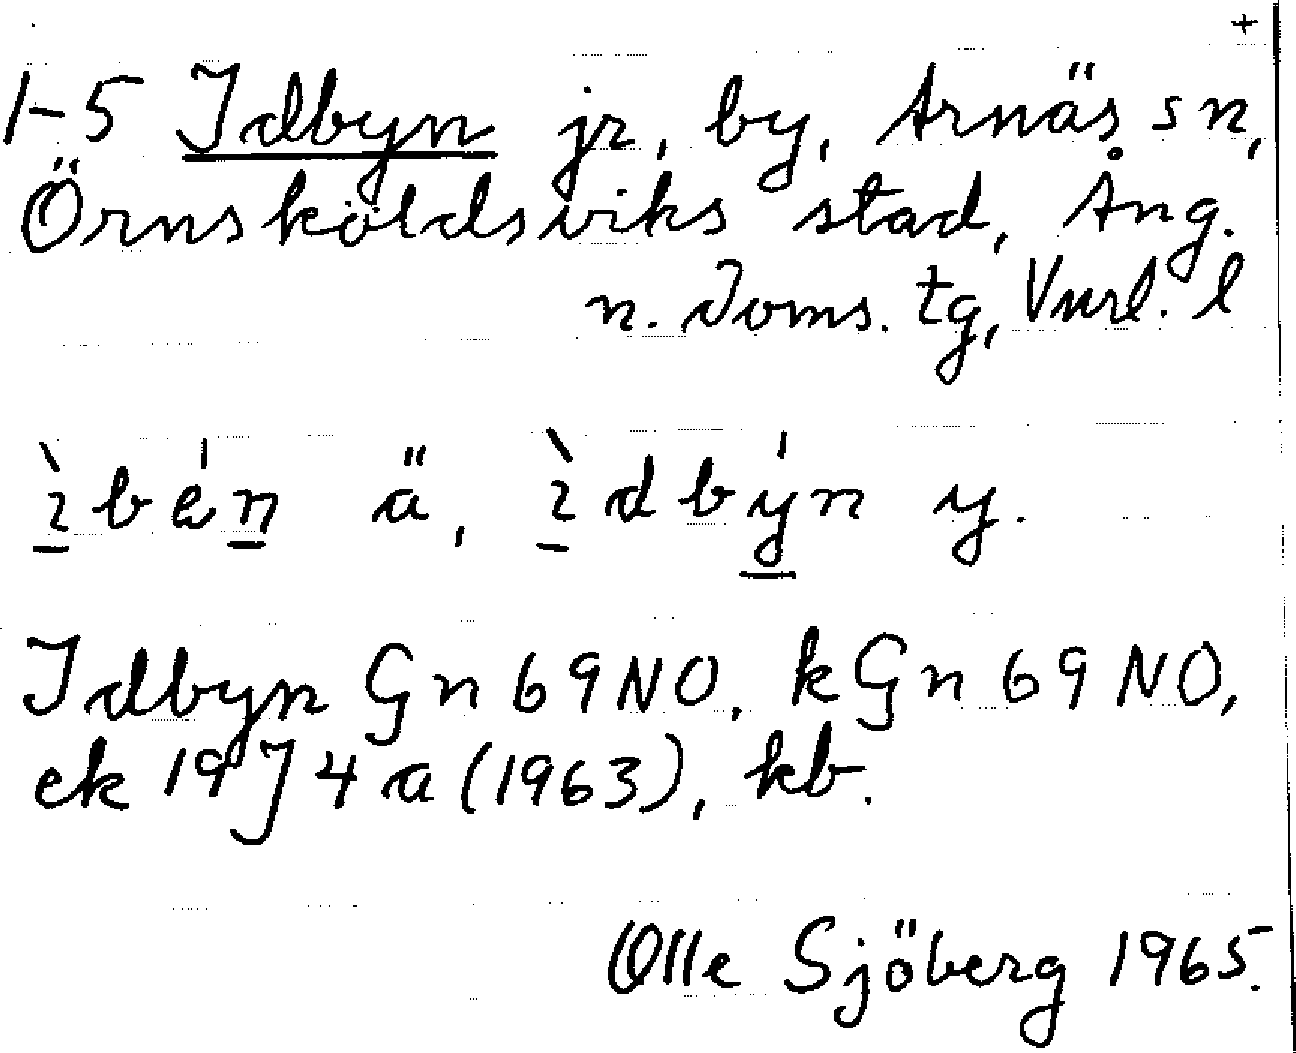 +
1-5 Idbyn jr, by, Arnäs sn,
Örnsköldsviks stad, Ång.
n. doms. tg, Vnrl. l
ìbén ä, ìdbýn y.
Idbyn Gn 69 NO, kGn 69 NO,
ek 19J4a (1963), kb.
Olle Sjöberg 1965.